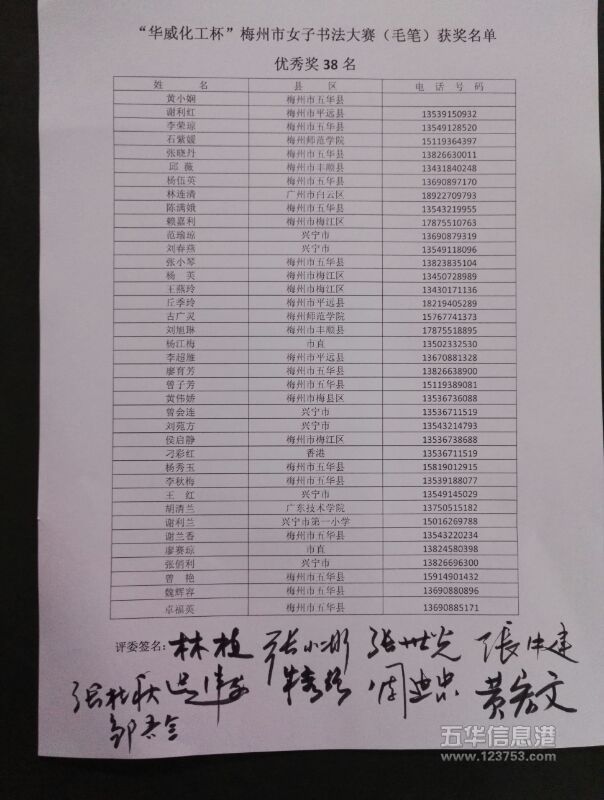 “华威化工杯”梅州市女子书法大赛（毛笔）获奖名单
优秀奖 38 名
姓 名 县 区 电 话 号 码
黄小娴 梅州市五华县
谢利红 梅州市平远县 13539150932
李荣琼 梅州市五华县 13549128520
石紫媛 梅州师范学院 15119364397
张晓丹 梅州市五华县 13826630011
邱 薇 梅州市丰顺县 13431840248
杨伍英 梅州市五华县 13690897170
林连清 广州市白云区 18922709793
陈满娥 梅州市五华县 13543219955
赖嘉利 梅州市梅江区 17875510763
范瑜琼 兴宁市 13690879319
刘春燕 兴宁市 13549118096
张小琴 梅州市五华县 13823835104
杨 英 梅州市梅江区 13450728989
王燕玲 梅州市梅江区 13430171136
丘季玲 梅州市平远县 18219405289
古广灵 梅州师范学院 15767741373
刘旭琳 梅州市丰顺县 17875518895
杨江梅 市直 13502332530
李超雁 梅州市平远县 13670881328
廖育芳 梅州市五华县 13826638900
曾子芳 梅州市五华县 15119389081
黄伟娇 梅州市梅县区 13536736088
曾会连 兴宁市 13536711519
刘苑方 兴宁市 13543214793
侯启静 梅州市梅江区 13536738688
刁彩红 香港 13536711519
杨秀玉 梅州市五华县 15819012915
李秋梅 梅州市五华县 13539188077
王 红 兴宁市 13549145029
胡清兰 广东技术学院 13750515182
谢利兰 兴宁市第一小学 15016269788
谢兰香 梅州市五华县 13543220234
廖赛琼 市直 13824580398
张俏利 兴宁市 13826696300
曾 艳 梅州市五华县 15914901432
魏辉容 梅州市五华县 13690880896
卓福英 梅州市五华县 13690885171
评委签名: 林 张小彬 张世光 张中建
张秋 黄宏文
邹
五华信息港
www.123753.com